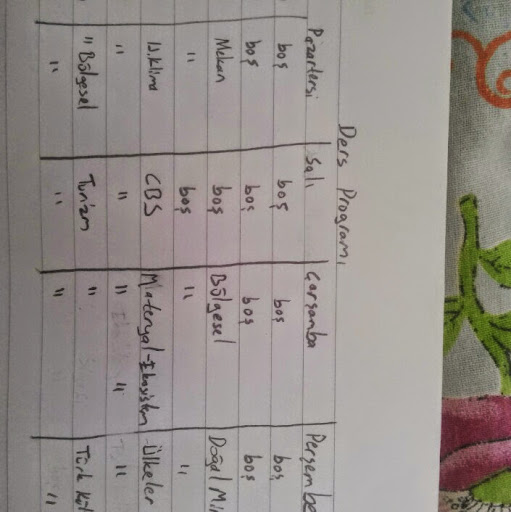 Ders Programı
Pazartesi Salı Çarşamba Perşembe
boş boş boş boş
boş boş boş boş
Mekan boş Bölgesel Doğal Mir
" boş " "
CBS Materyal-Ekosistem -Ülkeler
" " " " "
" Bölgesel Turizm " Türk Kül
" " " "